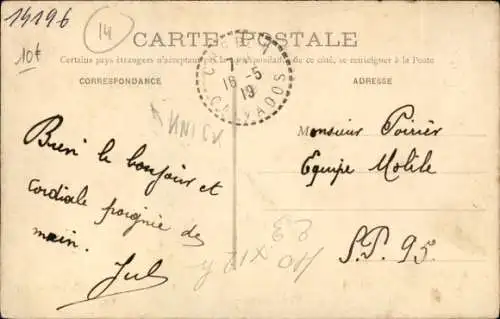 14196
14
10€
CARTE POSTALE
Certains pays étrangers n'acceptent pas la correspondance de ce côté, se renseigner à la Poste
CORRESPONDANCE
ADRESSE
7
16-5
19
CALVADOS
UNICK
Bien le bonjour et
cordiale poignée de
main.
Jul
Monsieur Poirier
Equipe Mobile
S.P. 95